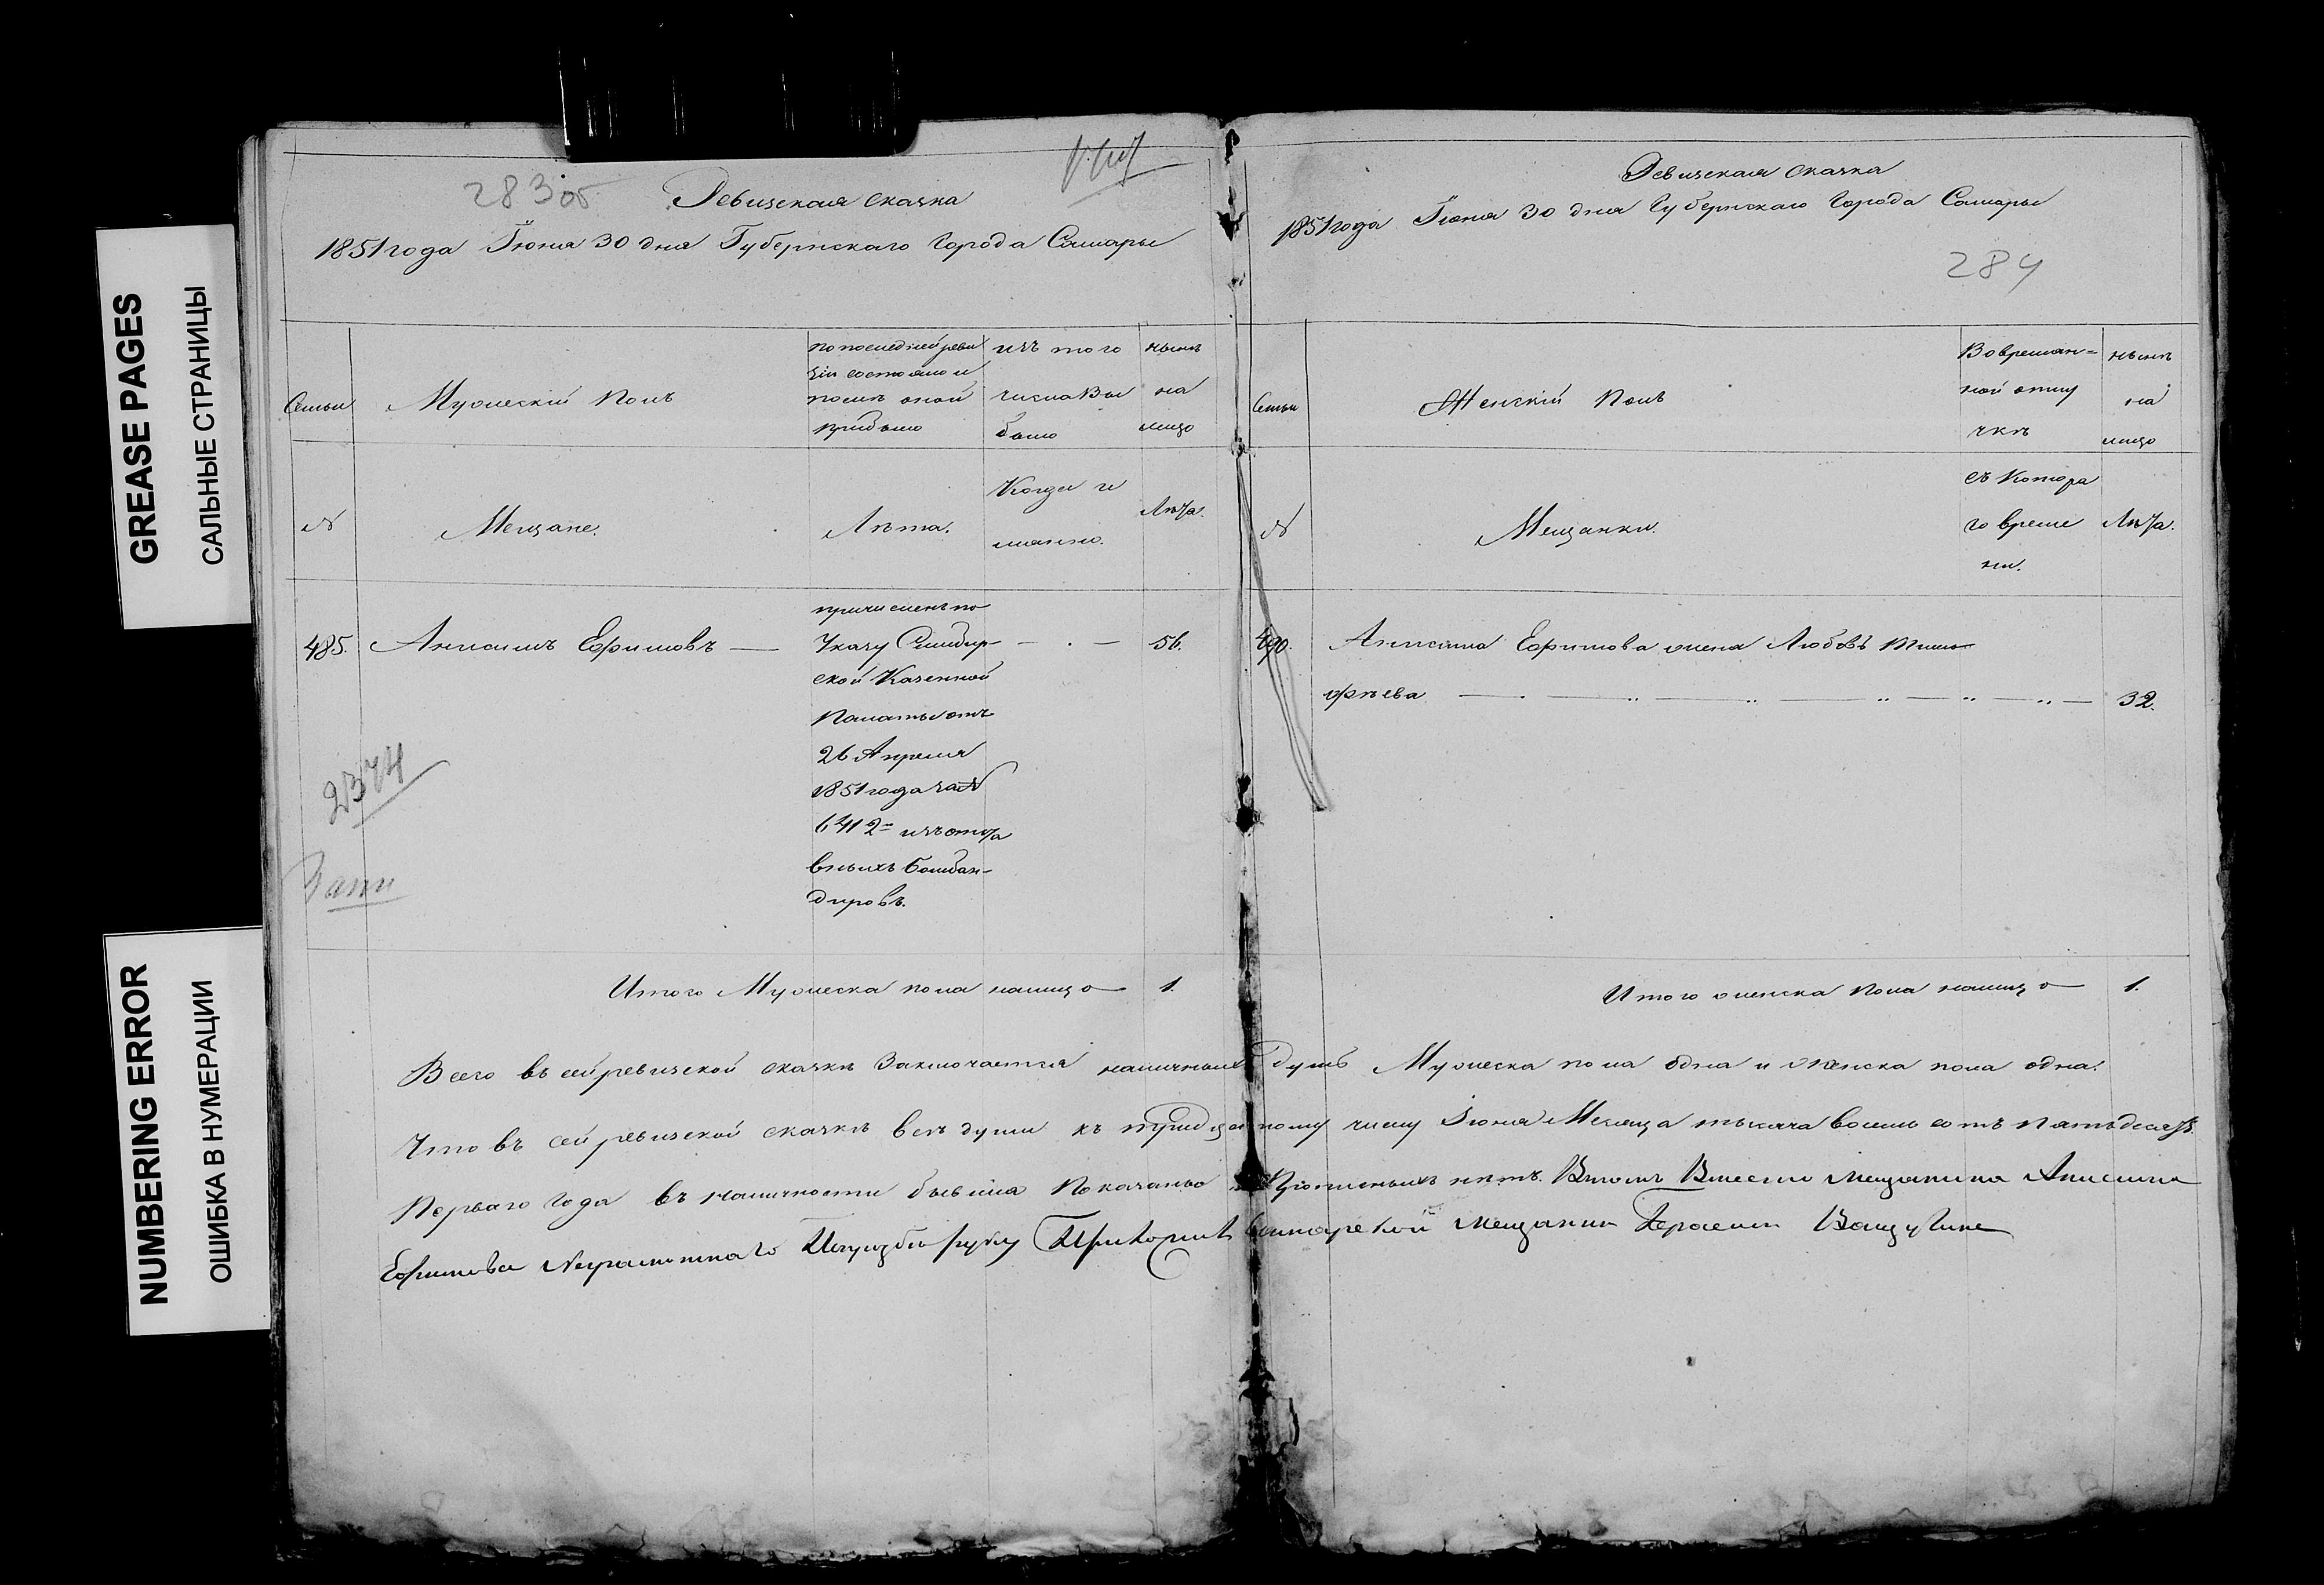 GREASE PAGES
САЛЬНЫЕ СТРАНИЦЫ
NUMBERING ERROR
ОШИБКА В НУМЕРАЦИИ
283об
Ревизская сказка
1851 года Іюня 30 дня Губернскаго Города Самары
Семьи
Мужескій Полъ
по последней реви
зіи состояло и
послѣ оной
прибыло
изъ того
числа Вы
было
нынѣ
на
лицо
№
Мещане.
Лѣта.
Когда и
имянно.
Лѣта.
485. Анисимъ Ефимовъ — 56.
причисленъ по
Указу Симбир-
ской Казенной
Палаты отъ
26 Апреля
1851 года за №
6412= изъ отста
вныхъ бомбан-
дировъ.
2374
Итого Мужеска пола налицо — 1.
Ревизская сказка
1851 года Іюня 30 дня Губернскаго Города Самары
284
Семьи
Женскій Полъ
Во времян=
ной отлу
чкѣ
нынѣ
на
лицо
№
Мещанки.
съ Котора
го време
ни.
Лѣта.
490. Анисима Ефимова жена Любовь Тимо
фѣева — 32.
Итого женска пола налицо — 1.
Всего въ сей ревизской сказкѣ Заключается наличныхъ душъ Мужеска пола одна и женска пола одна.
Что въ сей ревизской сказкѣ всѣ души къ тридцатому числу Іюня Месяца тысяча восемь сотъ пятьдесятъ
Перваго Года въ наличности бывшіа Показаны и Прописныхъ нѣтъ. Вътомъ Вместо мещанина Анисима
Ефимова неграмотнаго руку Приложилъ Самарской мещанинъ Герасим